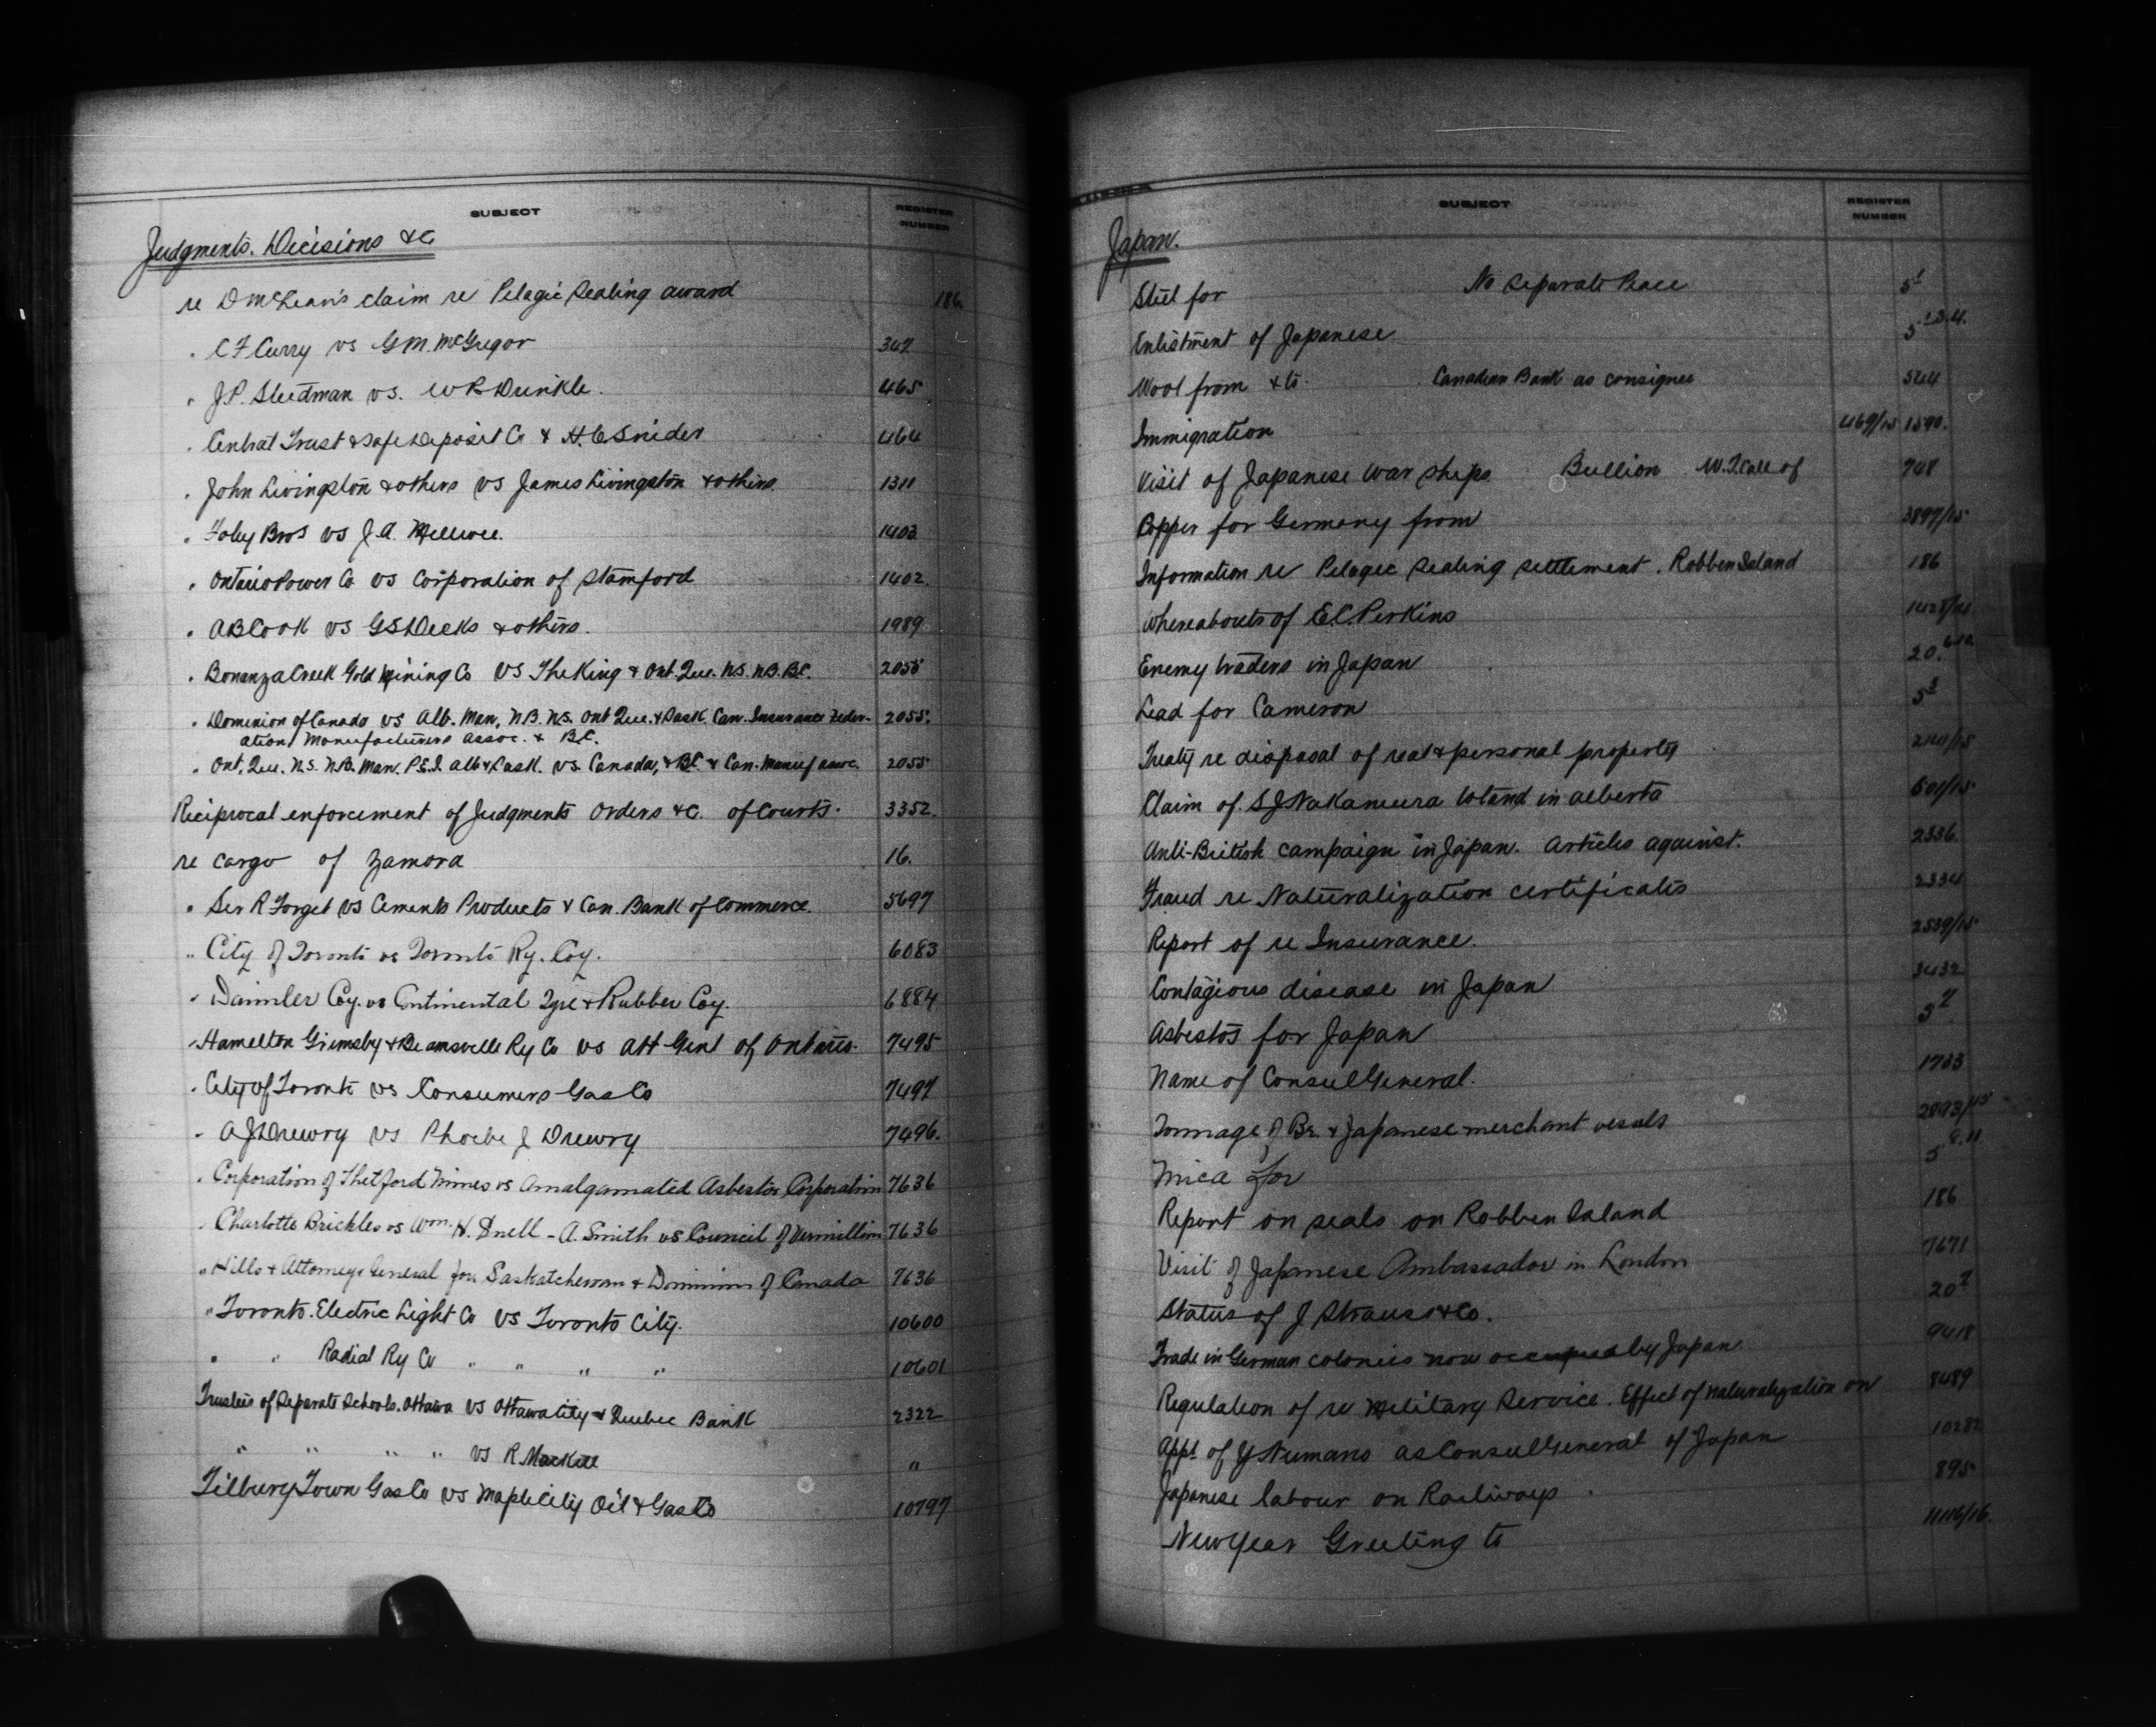 SUBJECT REGISTER NUMBER
Judgments. Decisions &c
re D McLean's claim re Pelagic Sealing award 186.
" C F Curry vs G M. McGregor 347
" J.P. Steedman vs. W R Dunkle. 465
" Central Trust & Safe Deposit Co & H. C Snider 464
" John Livingston & others vs James Livingston & others 1311
" Foley Bros vs J. A. McIlwee. 1403
" Ontario Power Co vs Corporation of Stamford 1402
" A B Cook vs G S Deeks & others. 1989
" Bonanza Creek Gold Mining Co vs The King & Ont. Que. N.S. N.B. B.C. 2055
" Dominion of Canada vs Alb. Man. N.B. N.S. Ont Que. & Sask. Can. Insurance Feder- 2055.
ation, Manufacturers Assoc. & B.C.
" Ont. Que. N.S. N.B. Man. P.E.I. Alb & Sask. vs. Canada, & B.C. & Can. Manuf assoc. 2055
Reciprocal enforcement of Judgments Orders &c. of Courts. 3352.
re cargo of Zamora 16.
" Sir R Forget vs Cements Products & Can. Bank of Commerce. 5697
" City of Toronto vs Toronto Ry. Coy. 6083
" Daimler Coy. vs Continental Tyre & Rubber Coy. 6884
" Hamilton Grimsby & Beamsville Ry Co vs Att Genl of Ontario. 7495
" City of Toronto vs Consumers Gas Co 7497
" A J Drewry vs Phoebe J Drewry 7496.
" Corporation of Thetford Mines vs Amalgamated Asbestos Corporation 7636
" Charlotte Brickles vs Wm. H. Snell - A. Smith vs Council of Vermillion 7636
" Hills & Attorney General for Saskatchewan & Dominion of Canada 7636
" Toronto Electric Light Co vs Toronto City. 10600
" " Radial Ry Co " " " " 10601
Trustees of Separate Schools. Ottawa vs Ottawa City & Quebec Bank 2322
" " " " vs R. Mackell "
Tilbury Town Gas Co vs Maple City Oil & Gas Co 10797
SUBJECT REGISTER NUMBER
Japan.
Steel for No Separate Peace 5 1
Enlistment of Japanese 5
Wool from & to. Canadian Bank as consignee
Immigration 469/15 1590.
Visit of Japanese war ships Bullion W. T. Call of 748
Copper for Germany from 3897/15
Information re Pelagic Sealing settlement. Robben Island 186
Whereabouts of E.C. Perkins
Enemy traders in Japan 20.
Lead for Cameron 5 3
Treaty re disposal of real & personal property
Claim of S J Nakamura to land in Alberta 601/15
Anti-British campaign in Japan. Articles against. 2336.
Fraud re Naturalization certificates 2334
Report of re Insurance. 2539/15
Contagious disease in Japan 3432
Asbestos for Japan 5 7
Name of Consul General. 1733
Tonnage of Br. & Japanese merchant vessels 2893/15
Mica for 5 8.11
Report on seals on Robben Island 186
Visit of Japanese Ambassador in London 7671
Status of J Strauss & Co. 20 7
Trade in German colonies now occupied by Japan 9418
Regulation of re Military Service. Effect of naturalization on 8489
Appt of Y Numano as Consul General of Japan 10282
Japanese labour on Railways. 895
New Year Greeting to 11116/16.